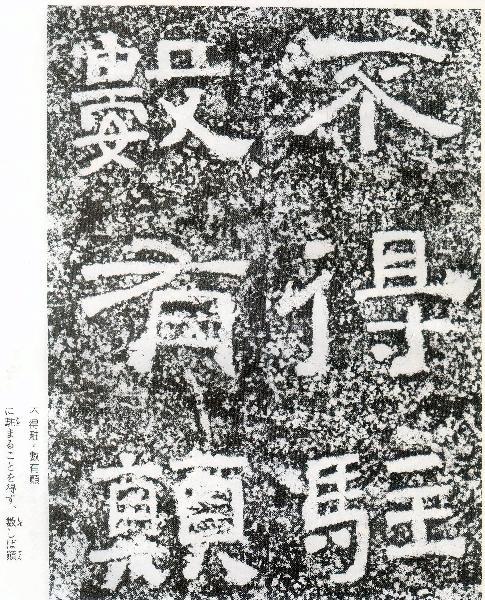 不得駐
數有顛
不得駐・數有顛
に駐まることを得ず、數しば顛